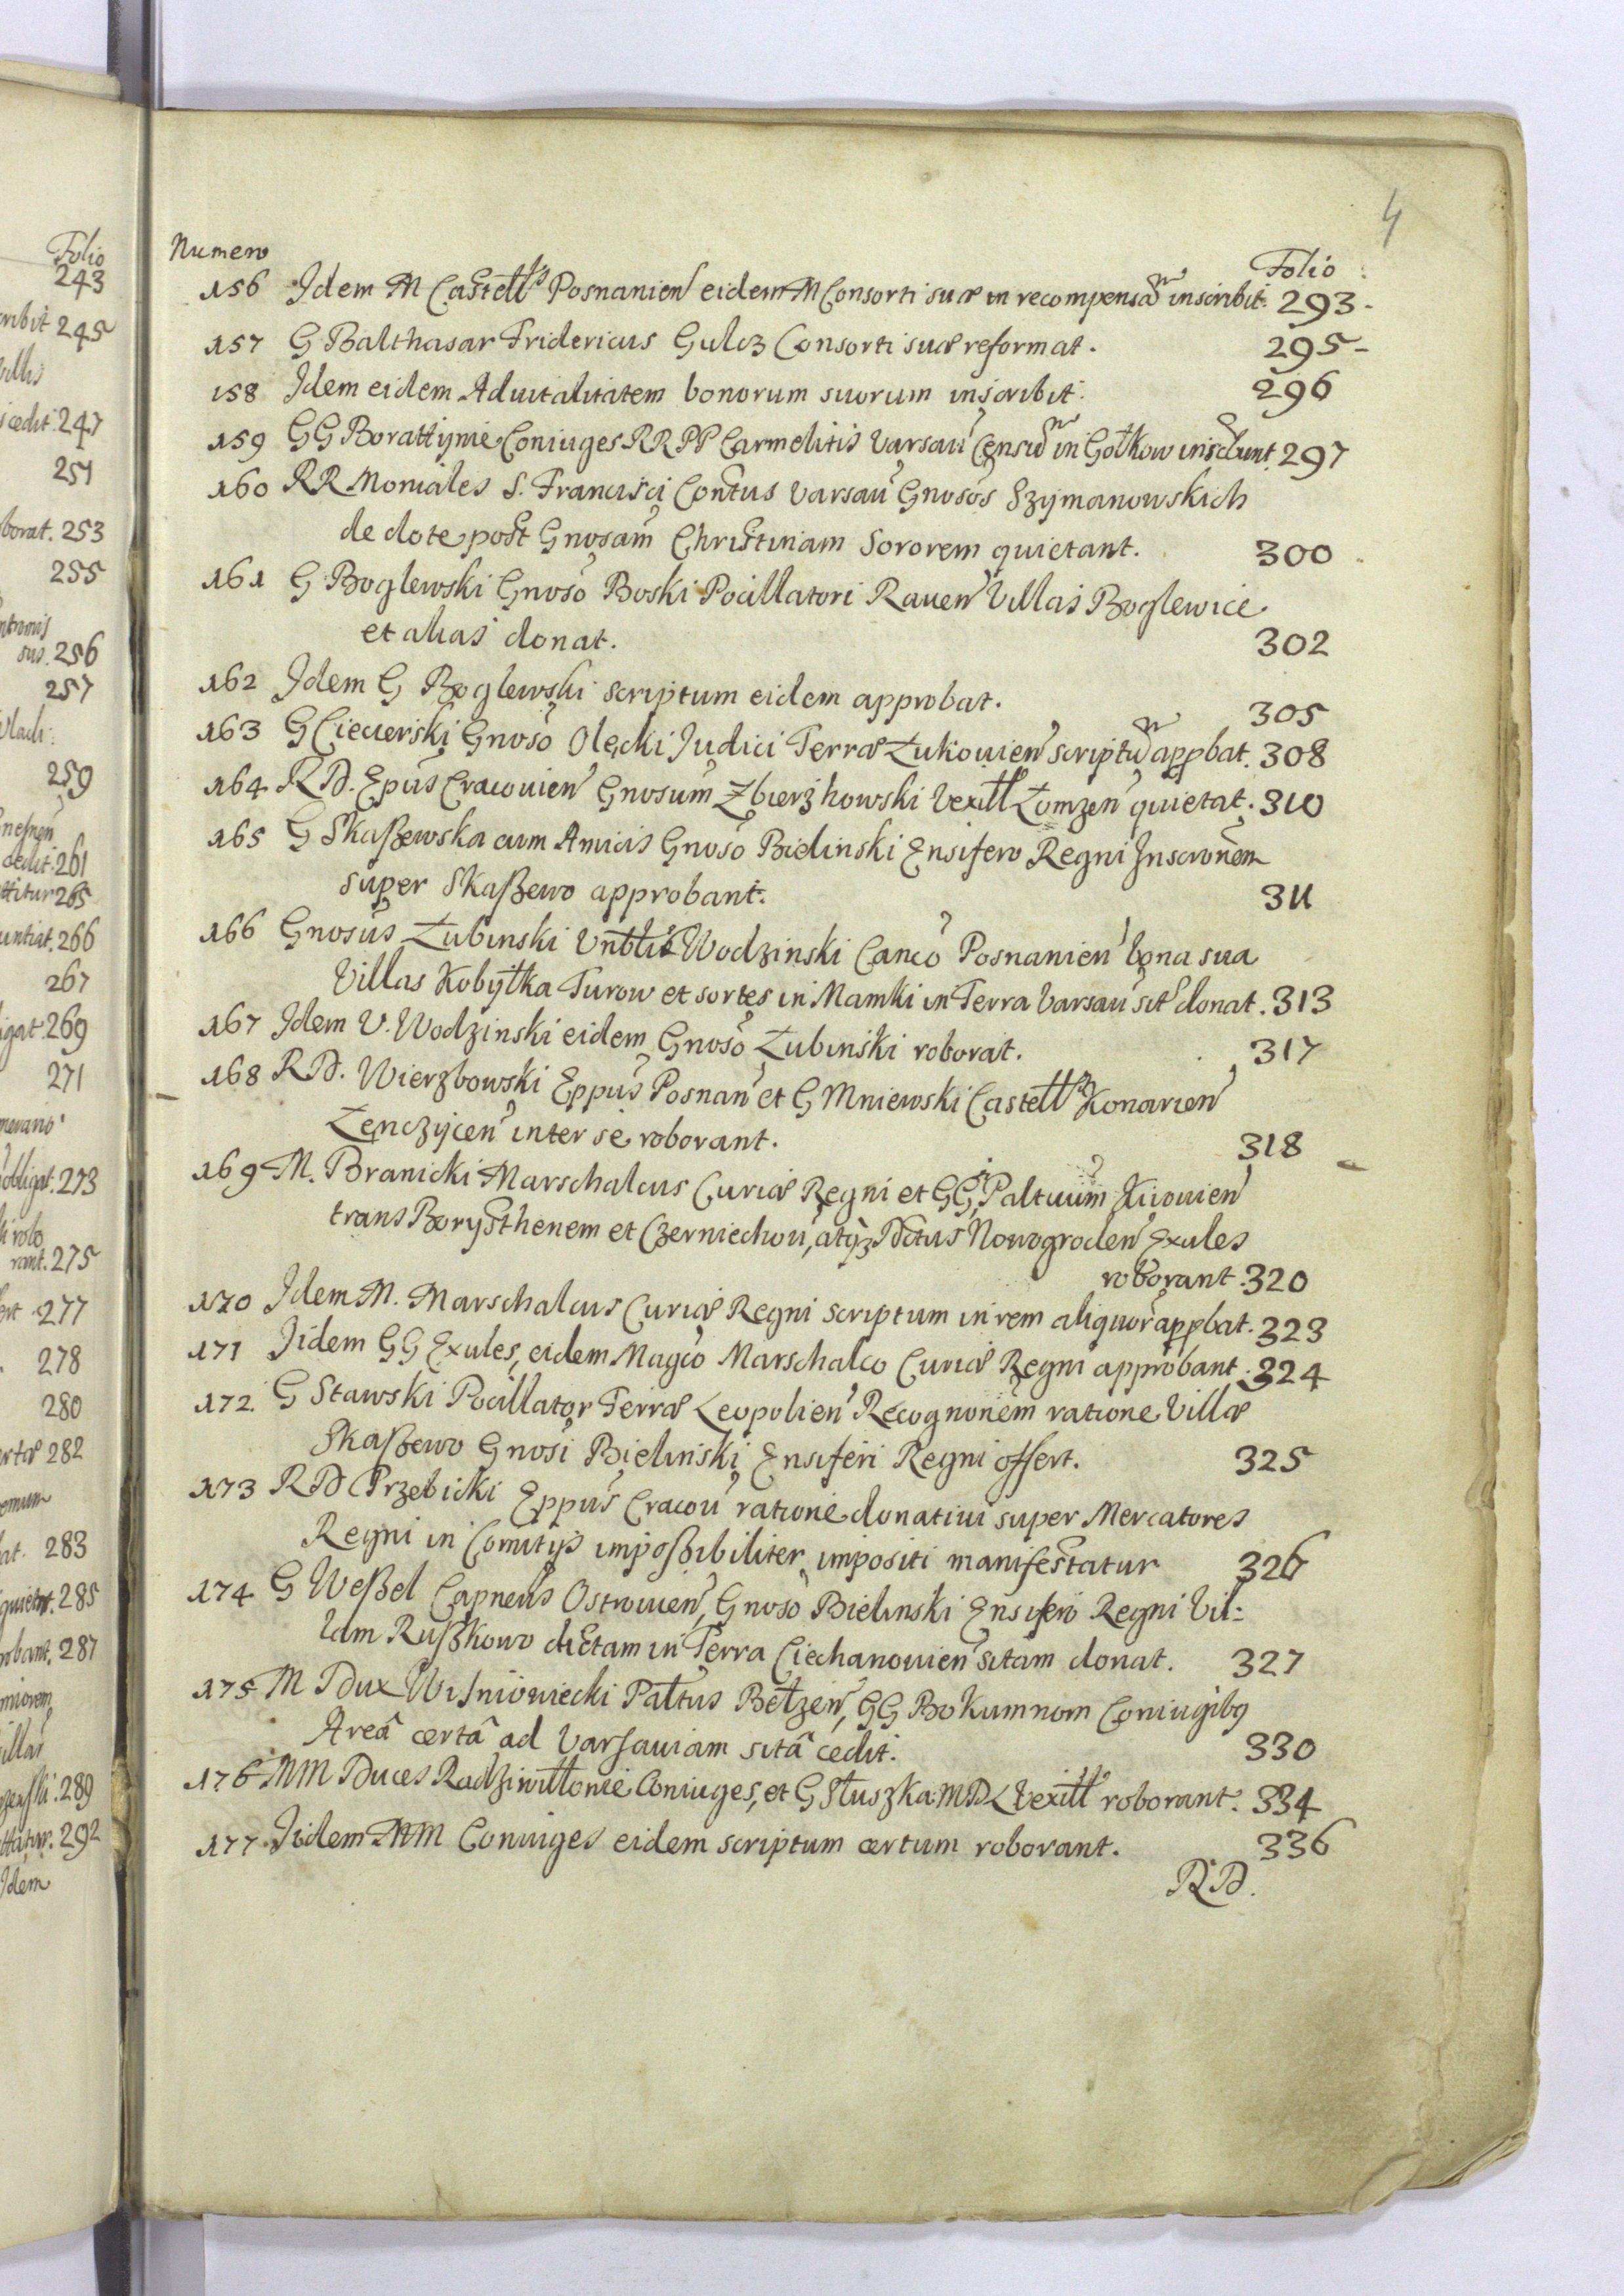 Folio
243
cribit 245
villis
cedit. 247
251
borat. 253
255
sus. 256
257
259
cedit. 261
ttitur 265
untiat. 266
267
269
271
obligat. 273
robo
rant. 275
277
278
280
282
283
quietat. 285
robant. 287
289
292
Idem
4
Numero Folio
156 Idem M Castell's Posnanien eidem M Consorti suæ in recompensam inscribit. 293
157 G Balthasar Fridericus Gulcz Consorti suæ reformat. 295
158 Idem eidem Aduitalitatem bonorum suorum inscribit. 296
159 GG Borattynie Coniuges RR PP Carmelitis Varsau Censum in Gołkow inscbunt. 297
160 RR Moniales S. Francisci Contus Varsau Gnosos Szymanowskich
de dote post Gnosam Christinam Sororem quietant. 300
161 G Boglewski Gnoso Boski Pocillatori Rauen Villas Boglewice
et alias donat. 302
162 Idem G Boglewski scriptum eidem approbat. 305
163 G Ciecierski Gnoso Olęcki Iudici Terræ Łukouien scriptum appbat. 308
164 RD. Epus Cracouien Gnosum Zbierzhowski Vexill Łomzen quietat. 310
165 G Skaßewska cum Amicis Gnoso Bielinski Ensifero Regni Inscronem
super Skaßewo approbant. 311
166 Gnosus Łubinski Wodzinski Canco Posnanien bona sua
Villas Kobyłka Turow et sortes in Mamki in Terra Varsau sit donat. 313
167 Idem V. Wodzinski eidem Gnoso Łubinski roborat. 317
168 RD. Wierzbowski Eppus Posnan et G Mniewski Castell Konarien
Łenczycen inter se roborant. 318
169 M. Branicki Marschalcus Curiæ Regni et GG Paltuum Kiiouien
trans Borysthenem et Czerniechou, atqz Dctus Nowogroden Exules
roborant. 320
170 Idem M. Marschalcus Curiæ Regni scriptum in rem aliquor appbat. 323
171 Iidem GG Exules, eidem Magco Marschalco Curiæ Regni approbant. 324
172. G Stawski Pocillator Terræ Leopolien Recognonem ratione Villæ
Skaßewo Gnosi Bielinski Ensiferi Regni offert. 325
173 RD Przebicki Eppus Cracou ratione donatiui super Mercatores
Regni in Comitijs impoßibiliter impositi manifestatur 326
174 G Weßel Capneus Ostrouien, Gnoso Bielinski Ensifero Regni Vil:
lam Rußkowo dictam in Terra Ciechanouien sitam donat. 327
175 M Dux Wisniowiecki Paltus Bełzen, GG Bokumnom Coniugibq
Areâ certâ ad Varsauiam sitâ cedit. 330
176 MM Duces Radziwiłłonie Coniuges, et G Słuszka MDL Vexill roborant. 334
177 Iidem MM Coniuges eidem scriptum certum roborant. 336
RD.